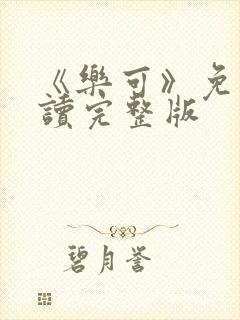 《樂可》免
讀完整版
碧月誉